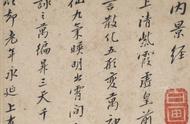 內景經
上清紫霞虛皇前
言散化五形變萬神
仙九氣暎明出霄間
詠之萬過昇三天千
以却老年永延上